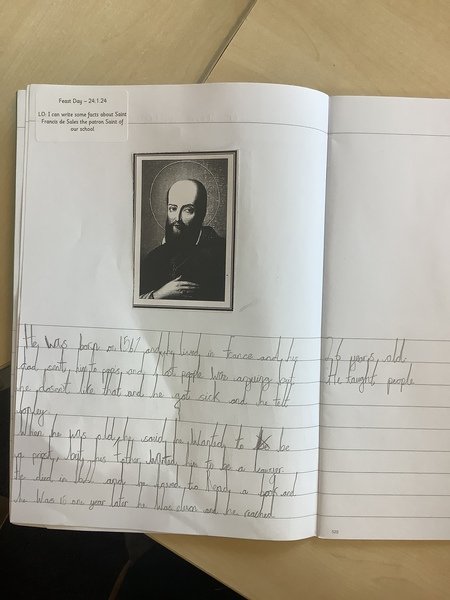 Feast Day – 24.1.24
LO: I can write some facts about Saint
Francis de Sales the patron Saint of
our school
He was born on 1567 and he lived in France and his
dad sent him to and a lot people were arguing but
he doesn't like that and he got sick and he felt
lonley
When he was older he said he wanted to be
a but his father wanted him to be a lawyer
He died in and he loved to read a book and
he was 10 one year later he was eleven and he reached
36 years old.
He taught people